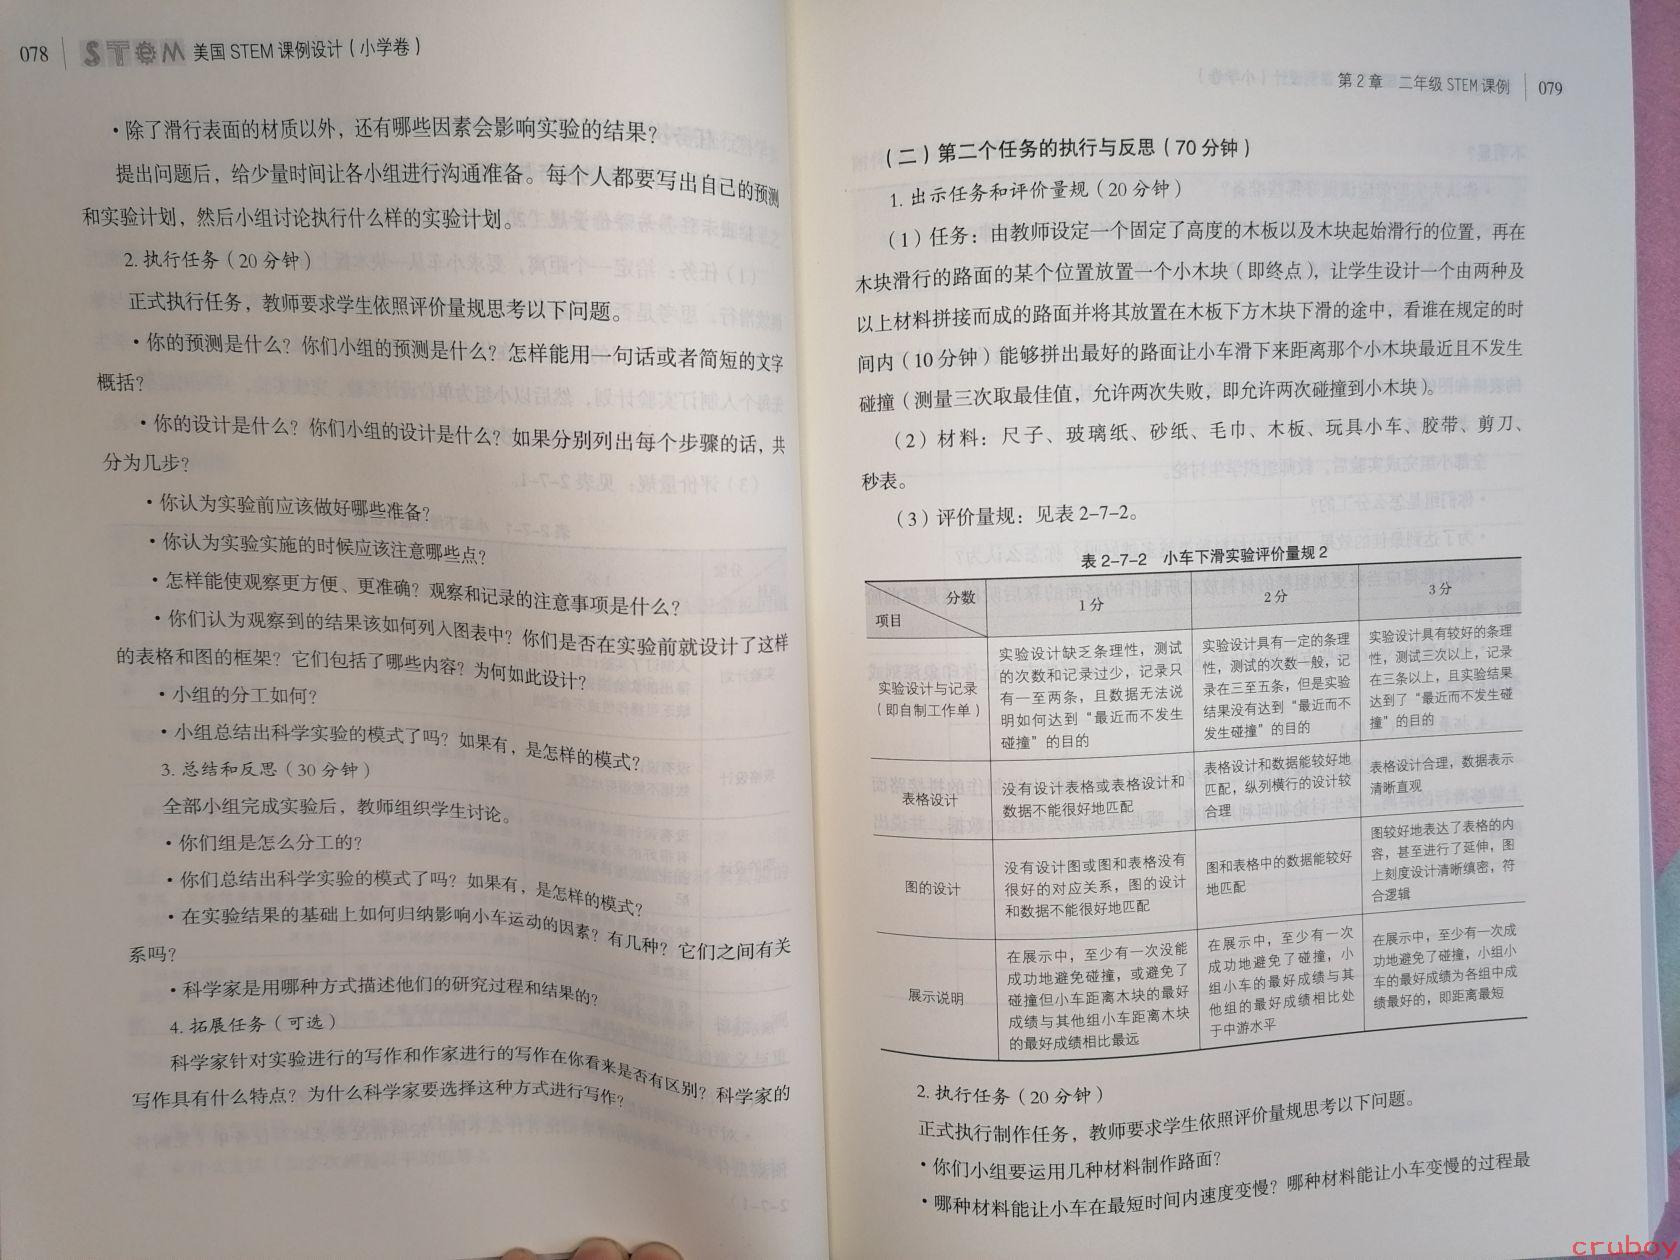 078 STEM 美国 STEM 课例设计(小学卷)
·除了滑行表面的材质以外,还有哪些因素会影响实验的结果?
提出问题后,给少量时间让各小组进行沟通准备。每个人都要写出自己的预测
和实验计划,然后小组讨论执行什么样的实验计划。
2. 执行任务(20 分钟)
正式执行任务,教师要求学生依照评价量规思考以下问题。
·你的预测是什么?你们小组的预测是什么?怎样能用一句话或者简短的文字
概括?
·你的设计是什么?你们小组的设计是什么?如果分别列出每个步骤的话,共
分为几步?
·你认为实验前应该做好哪些准备?
·你认为实验实施的时候应该注意哪些点?
·怎样能使观察更方便、更准确?观察和记录的注意事项是什么?
·你们认为观察到的结果该如何列入图表中?你们是否在实验前就设计了这样
的表格和图的框架?它们包括了哪些内容?为何如此设计?
·小组的分工如何?
·小组总结出科学实验的模式了吗?如果有,是怎样的模式?
3. 总结和反思(30 分钟)
全部小组完成实验后,教师组织学生讨论。
·你们组是怎么分工的?
·你们总结出科学实验的模式了吗?如果有,是怎样的模式?
·在实验结果的基础上如何归纳影响小车运动的因素?有几种?它们之间有关
系吗?
·科学家是用哪种方式描述他们的研究过程和结果的?
4. 拓展任务(可选)
科学家针对实验进行的写作和作家进行的写作在你看来是否有区别?科学家的
写作具有什么特点?为什么科学家要选择这种方式进行写作?
第 2 章 二年级 STEM 课例 079
(二)第二个任务的执行与反思(70 分钟)
1. 出示任务和评价量规(20 分钟)
(1)任务:由教师设定一个固定了高度的木板以及木块起始滑行的位置,再在
木块滑行的路面的某个位置放置一个小木块(即终点),让学生设计一个由两种及
以上材料拼接而成的路面并将其放置在木板下方木块下滑的途中,看谁在规定的时
间内(10 分钟)能够拼出最好的路面让小车滑下来距离那个小木块最近且不发生
碰撞(测量三次取最佳值,允许两次失败,即允许两次碰撞到小木块)。
(2)材料:尺子、玻璃纸、砂纸、毛巾、木板、玩具小车、胶带、剪刀、
秒表。
(3)评价量规:见表 2-7-2。
表 2-7-2 小车下滑实验评价量规 2
分数
项目
1 分
2 分
3 分
实验设计与记录
(即自制工作单)
实验设计缺乏条理性,测试
的次数和记录过少,记录只
有一至两条,且数据无法说
明如何达到“最近而不发生
碰撞”的目的
实验设计具有一定的条理
性,测试的次数一般,记
录在三至五条,但是实验
结果没有达到“最近而不
发生碰撞”的目的
实验设计具有较好的条理
性,测试三次以上,记录
在三条以上,且实验结果
达到了“最近而不发生碰
撞”的目的
表格设计
没有设计表格或表格设计和
数据不能很好地匹配
表格设计和数据能较好地
匹配,纵列横行的设计较
合理
表格设计合理,数据表示
清晰直观
图的设计
没有设计图或图和表格没有
很好的对应关系,图的设计
和数据不能很好地匹配
图和表格中的数据能较好
地匹配
图较好地表达了表格的内
容,甚至进行了延伸,图
上刻度设计清晰缜密,符
合逻辑
展示说明
在展示中,至少有一次没能
成功地避免碰撞,或避免了
碰撞但小车距离木块的最好
成绩与其他组小车距离木块
的最好成绩相比最远
在展示中,至少有一次
成功地避免了碰撞,小
组小车的最好成绩与其
他组的最好成绩相比处
于中游水平
在展示中,至少有一次成
功地避免了碰撞,小组小
车的最好成绩为各组中成
绩最好的,即距离最短
2. 执行任务(20 分钟)
正式执行制作任务,教师要求学生依照评价量规思考以下问题。
·你们小组要运用几种材料制作路面?
·哪种材料能让小车在最短时间内速度变慢?哪种材料能让小车变慢的过程最
cruboy